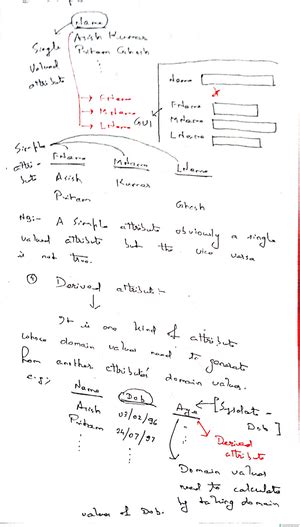 Name
Single
Valued
attribute
Asish Kumar
Pritam Ghosh
FName
MName
LName
GUI
Name
FName
MName
LName
Simple
attri-
bute
FName MName LName
Asish Kumar
Pritam Ghosh
NB:- A Simple attribute obviously a single
valued attribute but the vice versa
is not true.
Derived attribute:-
It is one kind of attribute
whose domain values need to generate
from another attributes' domain values.
e.g;
Name Dob Age [Sysdate -
Dob]
Asish 07/02/96
Pritam 24/07/97
Derived
attribute
Domain values
need to calculate
by taking domain
values of Dob.